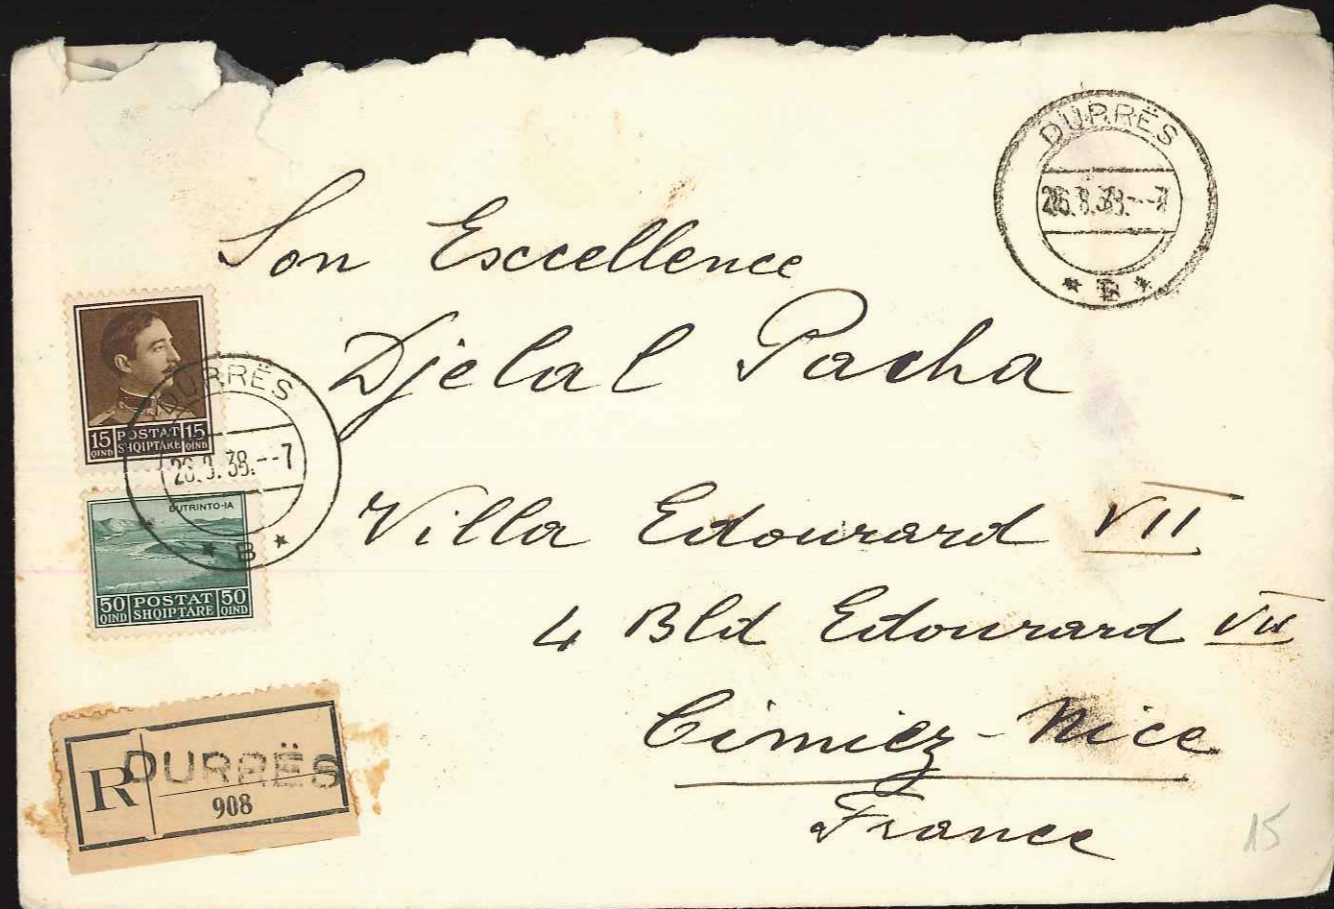 DURRËS
B
Son Exccellence
Djelal Pacha
Villa Edourard VII
4 Bld Edourard VII
Cimiez-Nice
France
15 POSTAT 15
QIND SHQIPTARE QIND
DURRËS
26.3.38.--7
B
BUTRINTO-IA
50 POSTAT 50
QIND SHQIPTARE QIND
R DURRËS
908
15